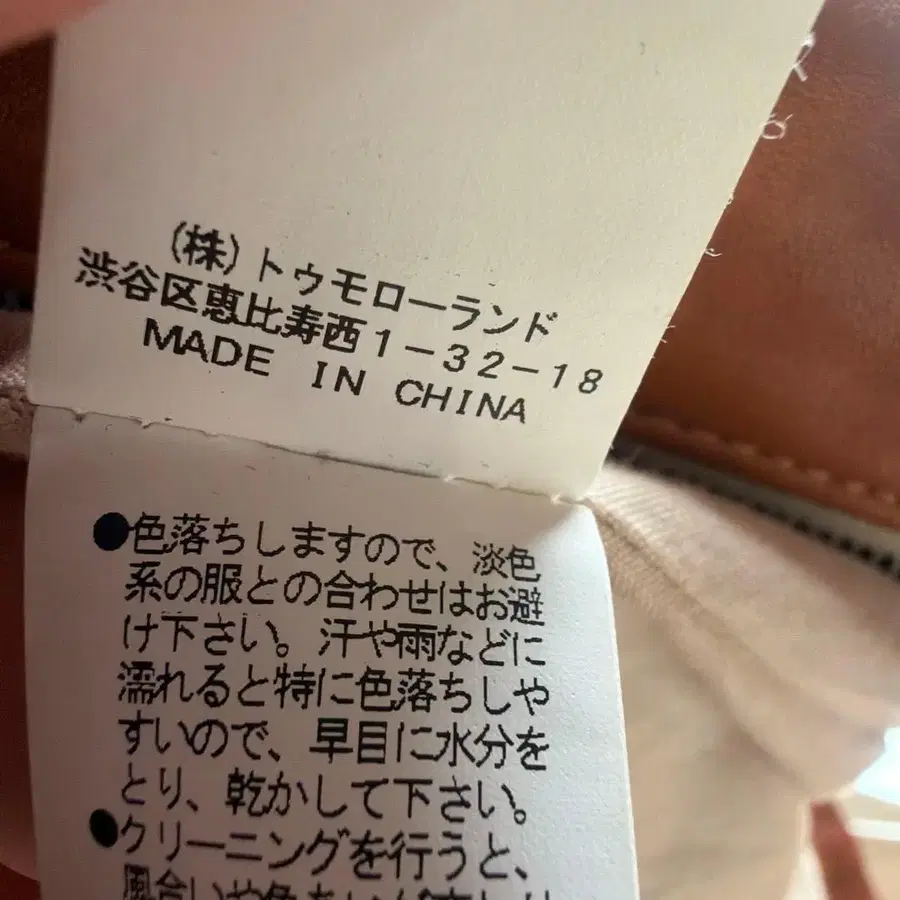 (株)トゥモローランド
渋谷区恵比寿西1-32-18
MADE IN CHINA
●色落ちしますので、淡色
系の服との合わせはお避
け下さい。汗や雨などに
濡れると特に色落ちしや
すいので、早目に水分を
とり、乾かして下さい。
●クリーニングを行うと、
風合いや色あいが